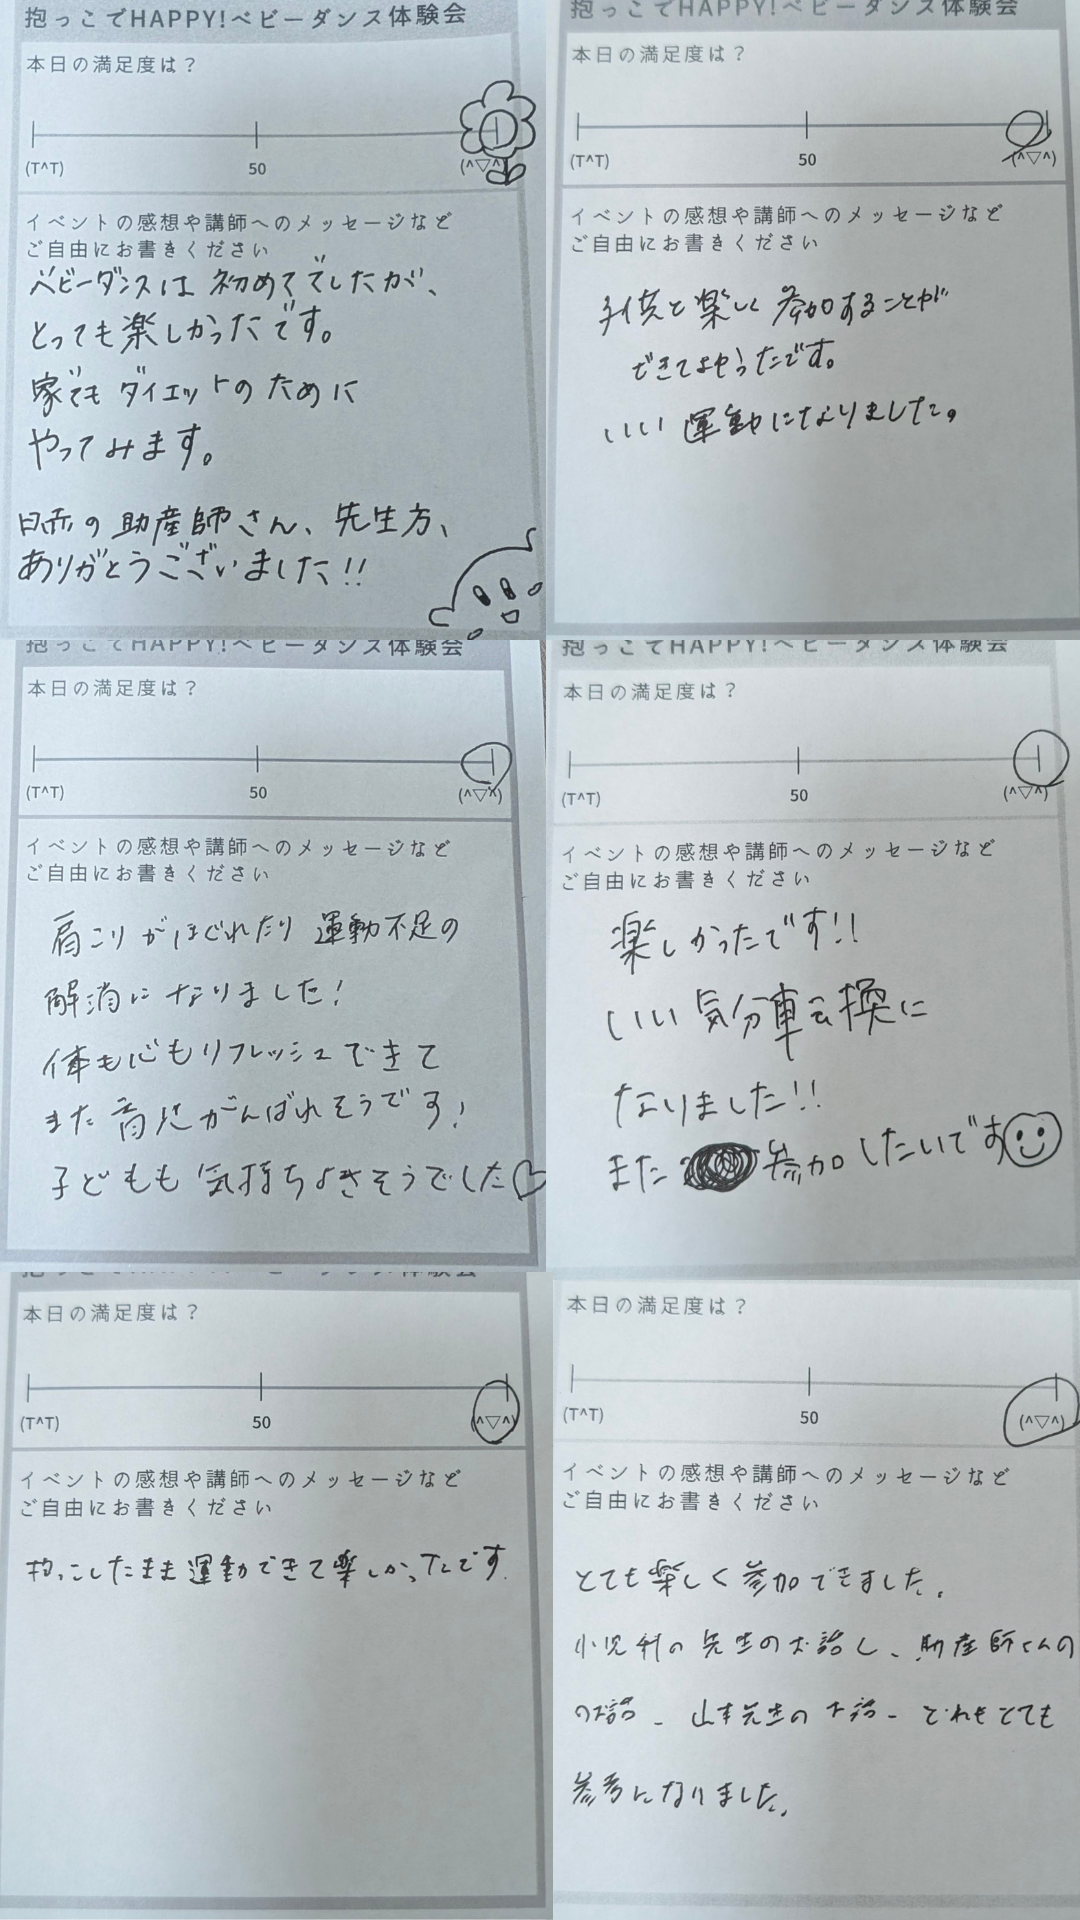 抱っこでHAPPY!ベビーダンス体験会
本日の満足度は？
(T^T) 50 (^▽^)
イベントの感想や講師へのメッセージなど
ご自由にお書きください
ベビーダンスは初めてでしたが、
とっても楽しかったです。
家でもダイエットのために
やってみます。
日赤の助産師さん、先生方、
ありがとうございました!!
抱っこでHAPPY!ベビーダンス体験会
本日の満足度は？
(T^T) 50 (^▽^)
イベントの感想や講師へのメッセージなど
ご自由にお書きください
子供と楽しく参加することが
できてよかったです。
いい運動になりました。
抱っこでHAPPY!ベビーダンス体験会
本日の満足度は？
(T^T) 50 (^▽^)
イベントの感想や講師へのメッセージなど
ご自由にお書きください
肩こりがほぐれたり運動不足の
解消になりました!
体も心もリフレッシュできて
また育児がんばれそうです!
子どもも気持ちよさそうでした♡
抱っこでHAPPY!ベビーダンス体験会
本日の満足度は？
(T^T) 50 (^▽^)
イベントの感想や講師へのメッセージなど
ご自由にお書きください
楽しかったです!!
いい気分転換に
なりました!!
また参加したいです
抱っこでHAPPY!ベビーダンス体験会
本日の満足度は？
(T^T) 50 (^▽^)
イベントの感想や講師へのメッセージなど
ご自由にお書きください
抱っこしたまま運動できて楽しかったです.
本日の満足度は？
(T^T) 50 (^▽^)
イベントの感想や講師へのメッセージなど
ご自由にお書きください
とても楽しく参加できました。
小児科の先生のお話し、助産師さんの
のお話、山本先生のお話、どれもとても
参考になりました。